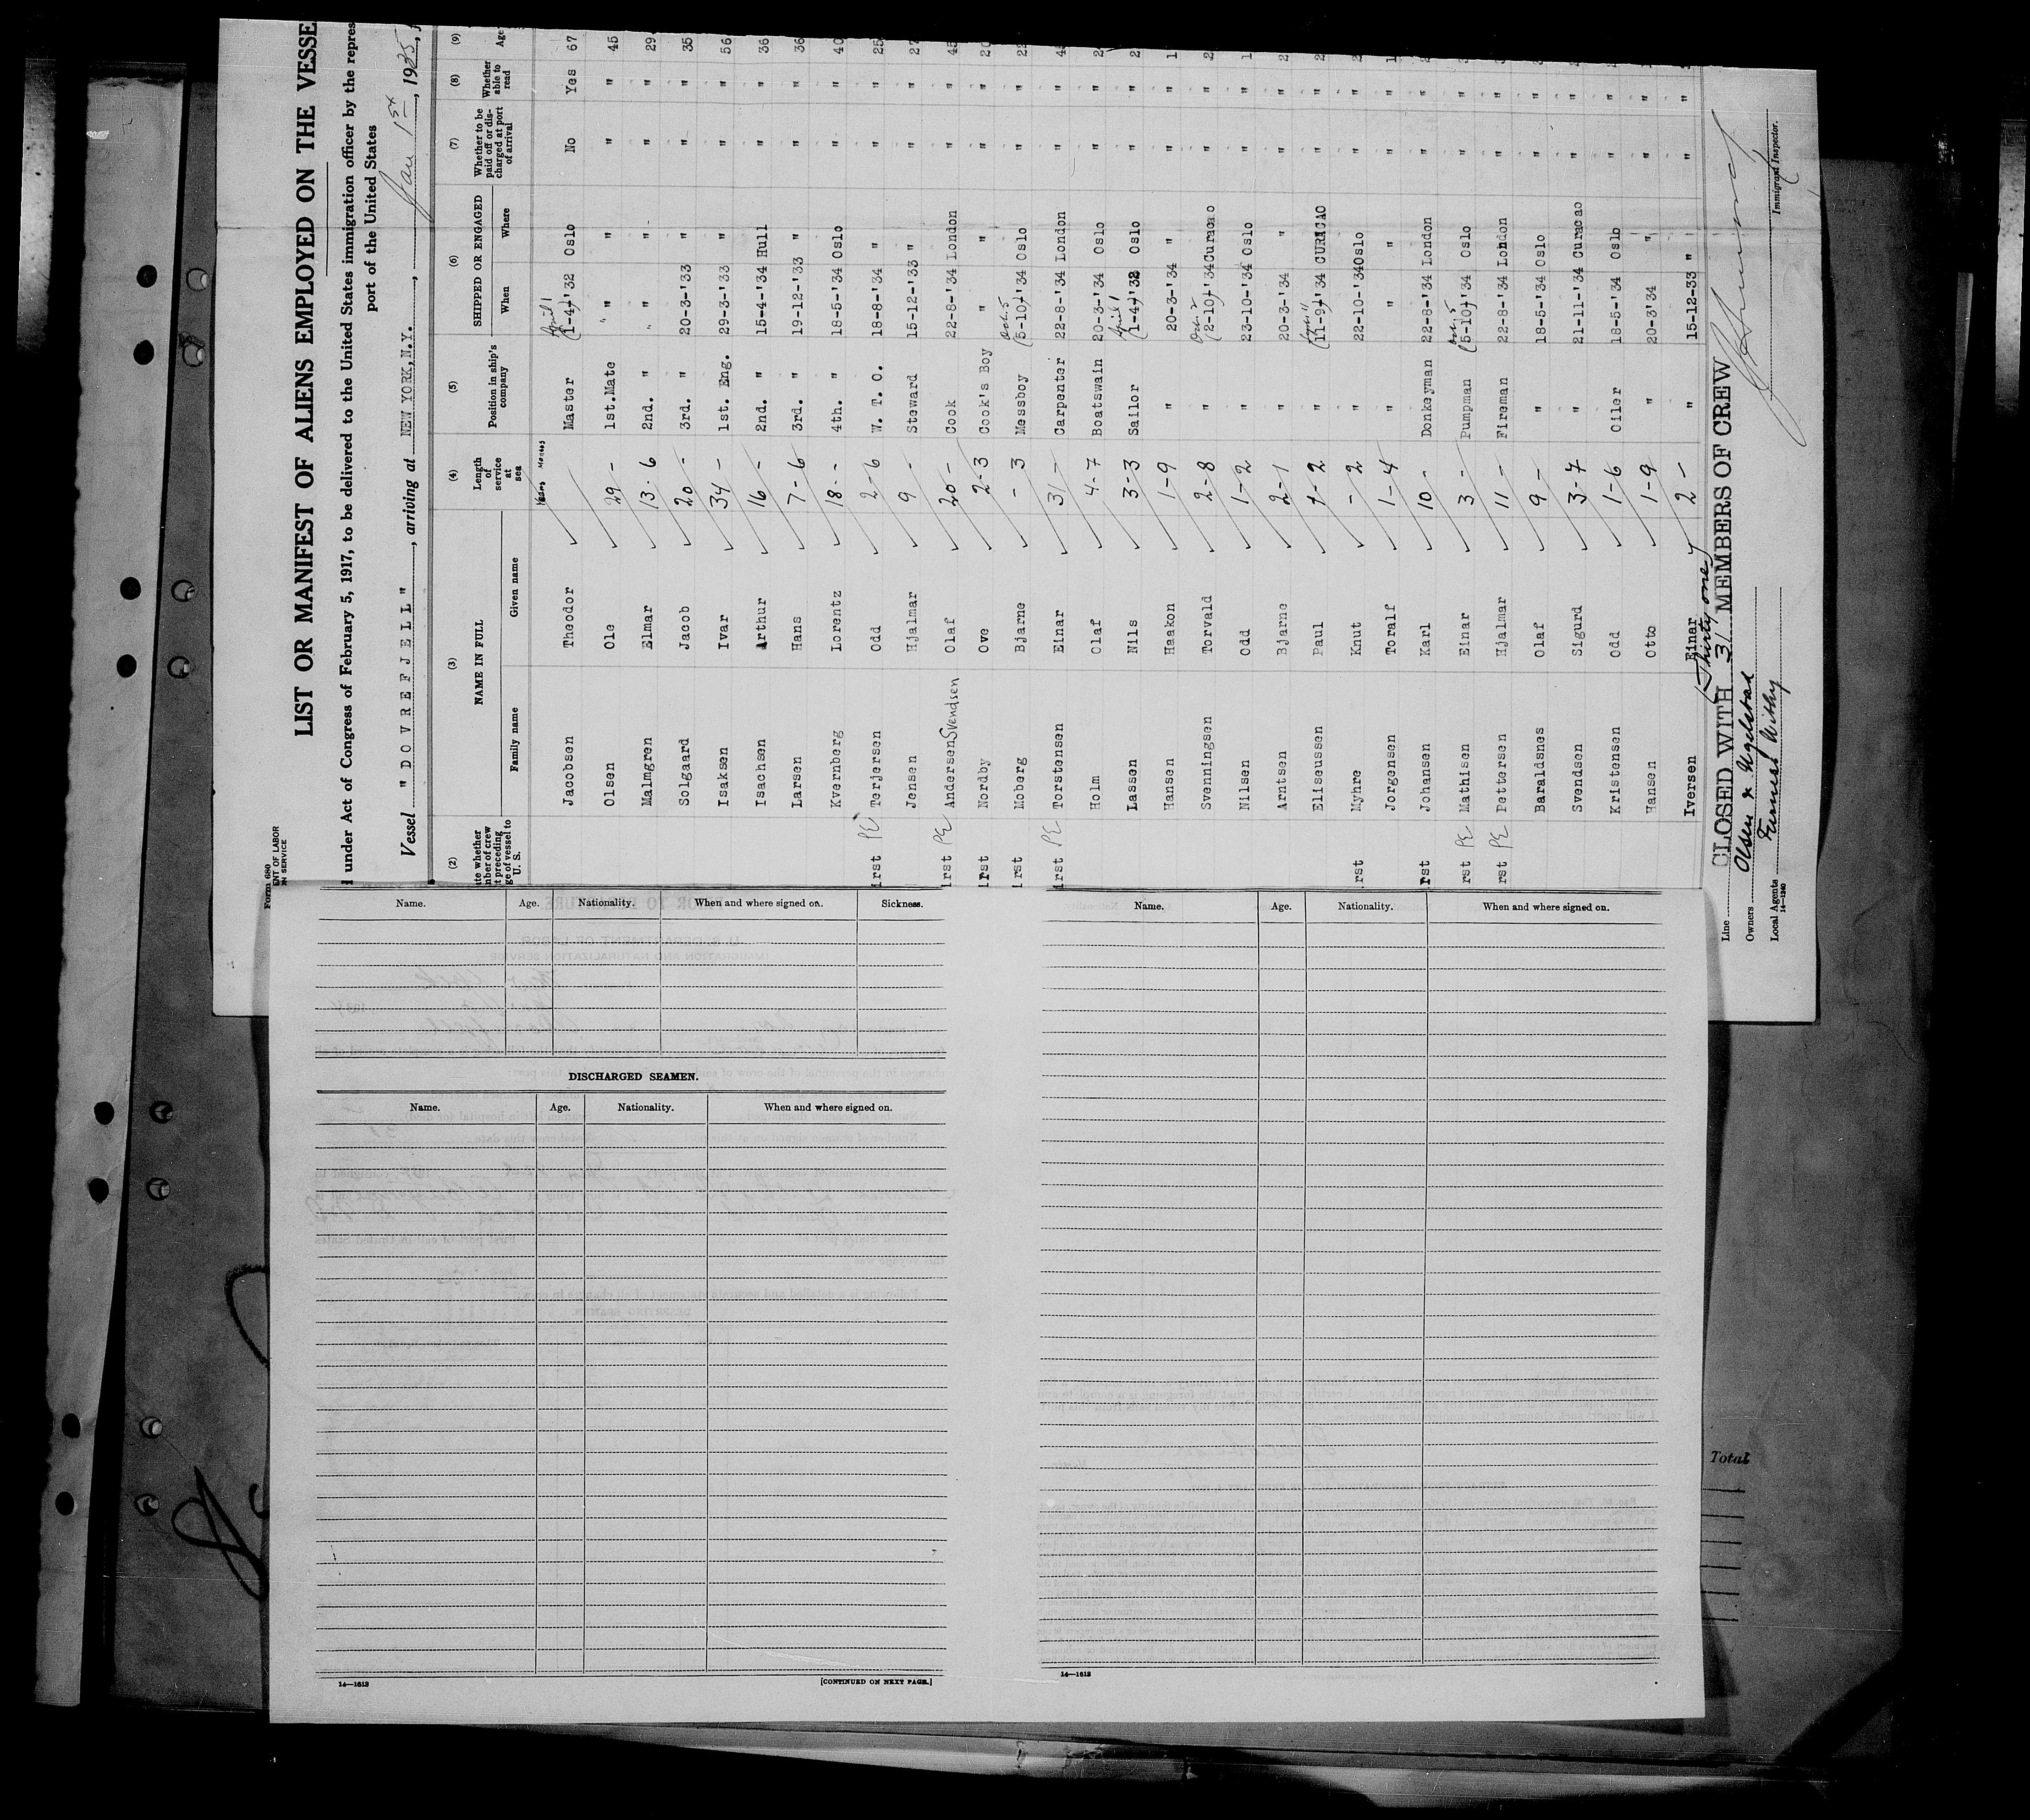 Form 680
ENT OF LABOR
N SERVICE
LIST OR MANIFEST OF ALIENS EMPLOYED ON THE VESSE
under Act of Congress of February 5, 1917, to be delivered to the United States immigration officer by the repres
port of the United States
Vessel "DOVREFJELL", arriving at NEW YORK, N.Y., Jan 1st, 1935,
(2) (3) (4) (5) (6) (7) (8) (9)
te whether mber of crew t preceding ge of vessel to U. S. NAME IN FULL Family name Given name Length of service at sea Position in ship's company SHIPPED OR ENGAGED When Where Whether to be paid off or discharged at port of arrival Whether able to read Age
Years Months
Jacobsen Theodor Master April 1 (1-4)-'32 Oslo No Yes 67
Olsen Ole 29 - 1st.Mate " " " " 45
Malmgren Elmar 13 - 6 2nd. " " " " " 29
Solgaard Jacob 20 - 3rd. " 20-3-'33 " " " 35
Isaksen Ivar 34 - 1st. Eng. 29-3-'33 " " " 56
Isachsen Arthur 16 - 2nd. " 15-4-'34 Hull " " 36
Larsen Hans 7 - 6 3rd. " 19-12-'33 " " " 36
Kvernberg Lorentz 18 - 4th. " 18-5-'34 Oslo " " 40
irst PE Terjersen Odd 2 - 6 W. T. O. 18-8-'34 " " " 25
Jensen Hjalmar 9 - Steward 15-12-'33 " " " 27
irst PE Andersen Svendsen Olaf 20 - Cook 22-8-'34 London " " 45
irst Nordby Ove 2 - 3 Cook's Boy " " " " 20
irst Moberg Bjarne - 3 Messboy Oct. 5 (5-10)-'34 Oslo " " 22
irst PE Torstensen Einar 31 - Carpenter 22-8-'34 London " "
Holm Olaf 4 - 7 Boatswain 20-3-'34 Oslo " "
Lassen Nils 3 - 3 Sailor April 1 (1-4)-'32 Oslo " "
Hansen Haakon 1 - 9 " 20-3-'34 " " "
Svenningsen Torvald 2 - 8 " Oct. 2 (2-10)-'34 Curacao " "
Nilsen Odd 1 - 2 " 23-10-'34 Oslo " "
Arntsen Bjarne 2 - 1 " 20-3-'34 " " "
Eliseussen Paul 1 - 2 " (11-9)-'34 CURACAO " "
irst Myhre Knut - 2 " 22-10-'34 Oslo " "
Jorgensen Toralf 1 - 4 " " " "
irst Johansen Karl 10 - Donkeyman 22-8-'34 London " "
rst PE Mathisen Einar 3 - Pumpman Oct. 5 (5-10)-'34 Oslo " "
rst PE Pettersen Hjalmar 11 - Fireman 22-8-'34 London " "
Baraldsnes Olaf 9 - " 18-5-'34 Oslo " "
Svendsen Sigurd 3 - 7 " 21-11-'34 Curacao " "
Kristensen Odd 1 - 6 Oiler 18-5-'34 Oslo " "
Hansen Otto 1 - 9 " 20-3'34 " " "
Iversen Einar 2 - " 15-12-33 " " "
(Thirty one)
Line CLOSED WITH 31 MEMBERS OF CREW
Owners Olsen & Ugelstad
Local Agents Furness Withy
14—1240
Immigrant Inspector.
Name. Age. Nationality. When and where signed on. Sickness.
DISCHARGED SEAMEN.
Name. Age. Nationality. When and where signed on.
14—1613 [CONTINUED ON NEXT PAGE.]
Name. Age. Nationality. When and where signed on.
14—1613
Total